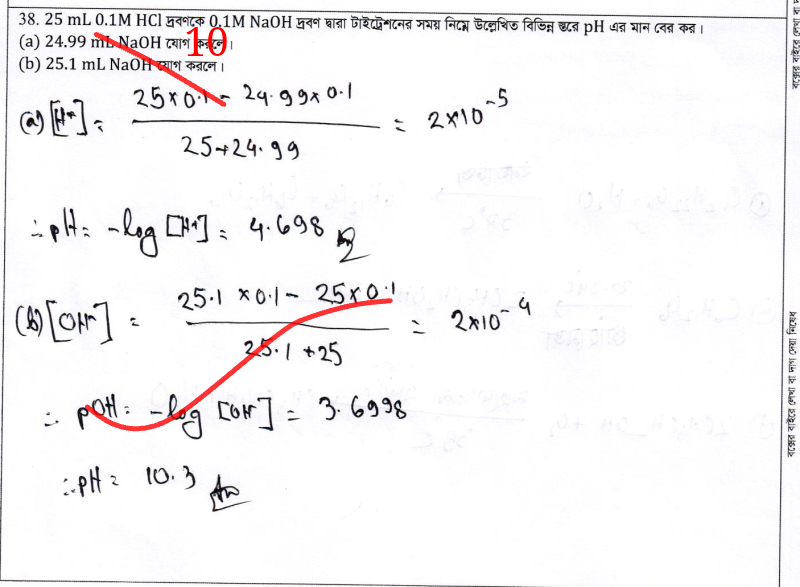 38. 25 mL 0.1M HCl দ্রবণকে 0.1M NaOH দ্রবণ দ্বারা টাইট্রেশনের সময় নিম্নে উল্লেখিত বিভিন্ন স্তরে pH এর মান বের কর।
(a) 24.99 mL NaOH যোগ করলে।
10
(b) 25.1 mL NaOH যোগ করলে।
(a) [H⁺] = (25×0.1 - 24.99×0.1) / (25+24.99) = 2×10⁻⁵
∴ pH = -log [H⁺] = 4.698
(b) [OH⁻] = (25.1 ×0.1 - 25×0.1) / (25.1 +25) = 2×10⁻⁴
∴ pOH = -log [OH⁻] = 3.6998
∴ pH = 10.3 Ans
বক্সের বাইরে লেখা বা দাগ দেয়া নিষেধ